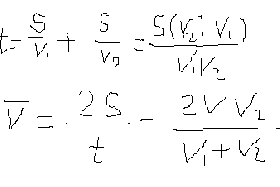 t = S/V₁ + S/V₂ = S(V₂ + V₁)/V₁V₂
V̅ = 2S/t = 2VV₂/V₁+V₂